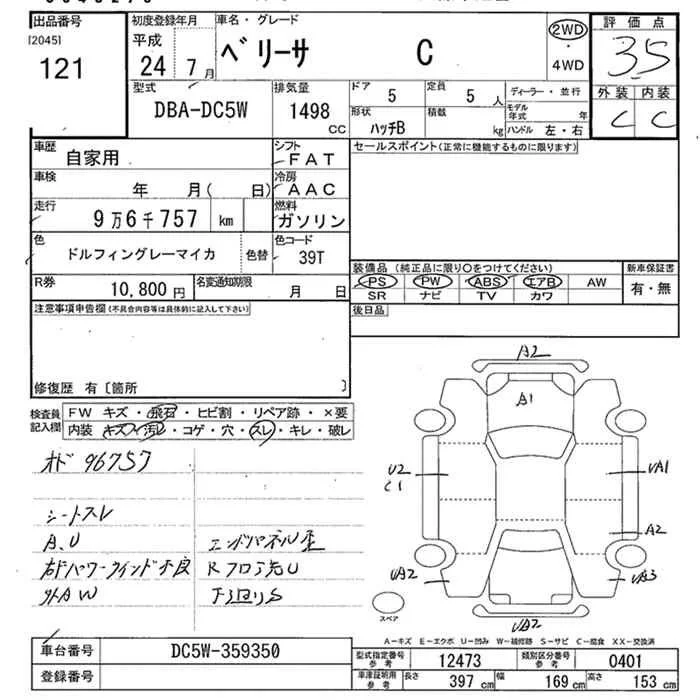 出品番号
[2045]
121
初度登録年月
平成
24 7月
車名・グレード
ベリーサ C
2WD
・
4WD
評価点
3.5
外装 内装
C C
型式
DBA-DC5W
排気量
1498
CC
ドア
5
定員
5 人
形状
ハッチB
積数
kg
ディーラー・並行
モデル
年式 年
ハンドル 左・右
車歴
自家用
シフト
FAT
車検
年 月( 日)
冷房
AAC
走行
9万6千757 km
燃料
ガソリン
色
ドルフィングレーマイカ
色替
色コード
39T
R券
10,800円
名変通知期限
月 日
セールスポイント(正常に機能するものに限ります)
装備品(純正品に限り○をつけてください)
PS PW ABS エアB AW
SR ナビ TV カワ
新車保証書
有・無
後日品
注意事項申告欄(不具合内容等は具体的に記入して下さい)
修復歴 有〔箇所 〕
検査員
記入欄
FW キズ・飛石・ヒビ割・リペア跡・×要
内装 キズ・汚レ・コゲ・穴・スレ・キレ・破レ
オド 96757
シートスレ
A.U
右ドパワーウインド不良
外AW
エンドパネル歪
Rフロア先U
下廻りS
A2
A1
U2
C1
UA1
A2
UA2
UA3
UA2
スペア
A-キズ E-エクボ U-凹み W-補修跡 S-サビ C-腐食 XX-交換済
車台番号
DC5W-359350
登録番号
型式指定番号
参考
12473
類別区分番号
参考
0401
車庫証明用
参考
長さ
397 cm
幅
169 cm
高さ
153 cm